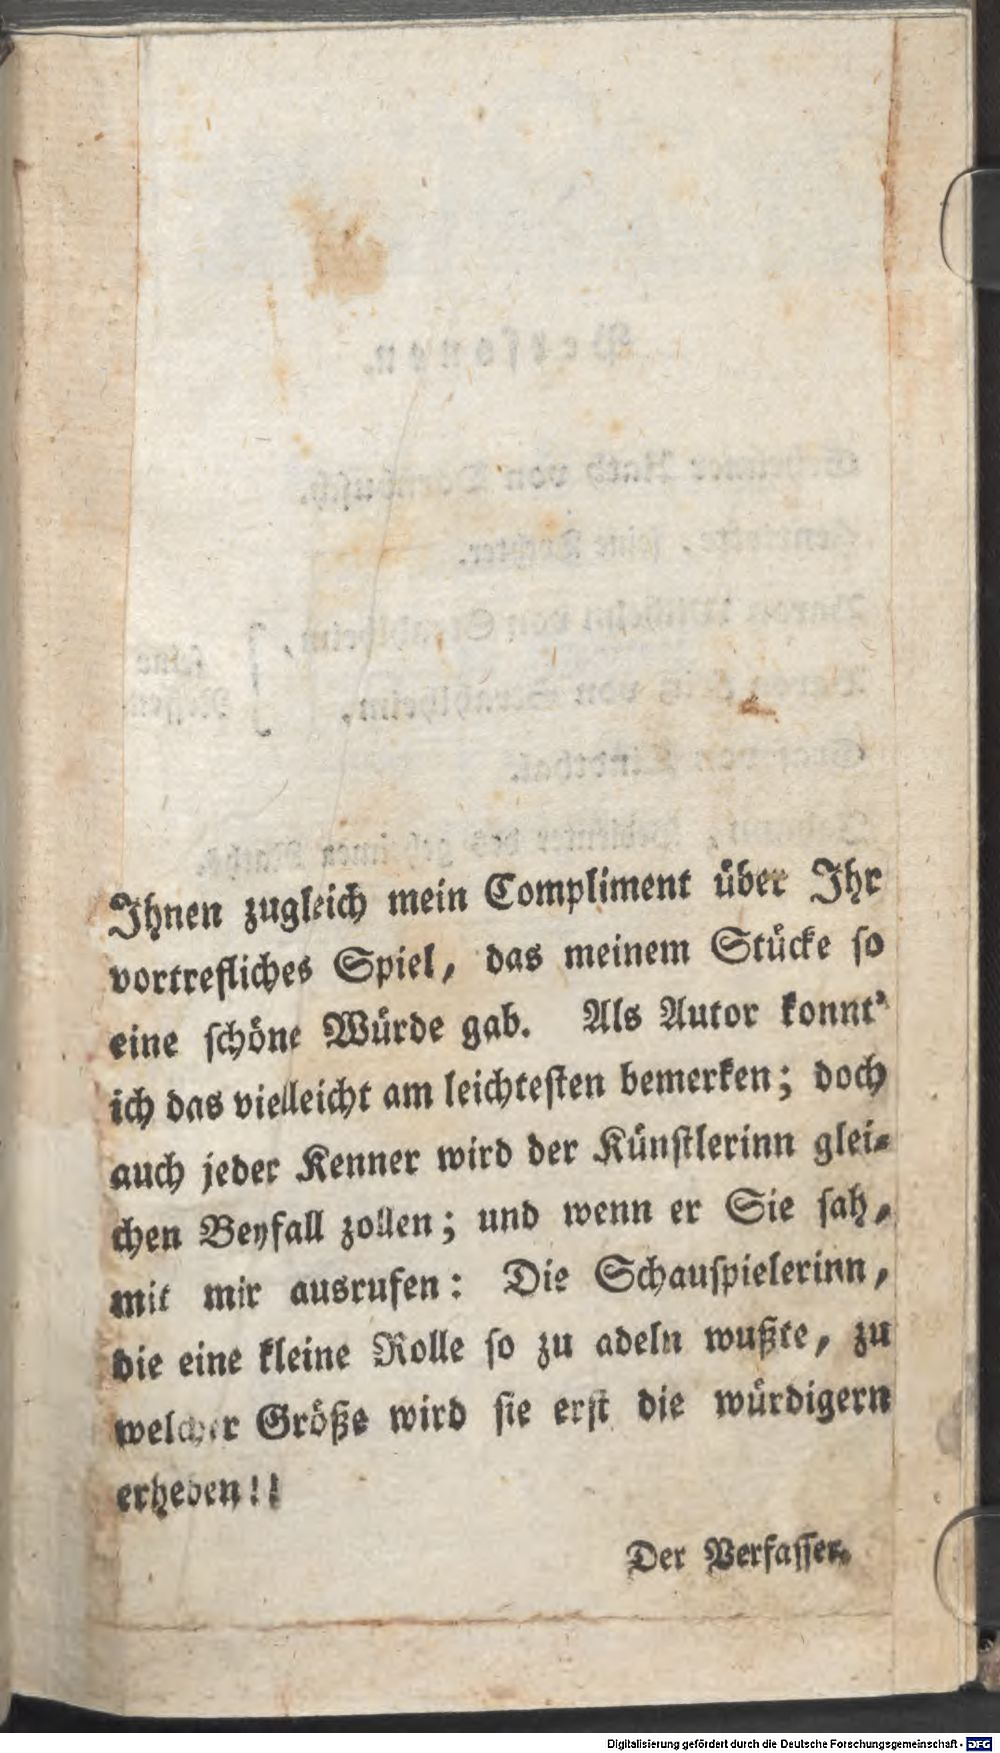 Ihnen zugleich mein Compliment über Ihr
vortrefliches Spiel, das meinem Stücke so
eine schöne Würde gab. Als Autor konnt'
ich das vielleicht am leichtesten bemerken; doch
auch jeder Kenner wird der Künstlerinn glei-
chen Beyfall zollen; und wenn er Sie sah,
mit mir ausrufen: Die Schauspielerinn,
die eine kleine Rolle so zu adeln wußte, zu
welcher Größe wird sie erst die würdigern
erheben!!
Der Verfasser.
Digitalisierung gefördert durch die Deutsche Forschungsgemeinschaft - DFG